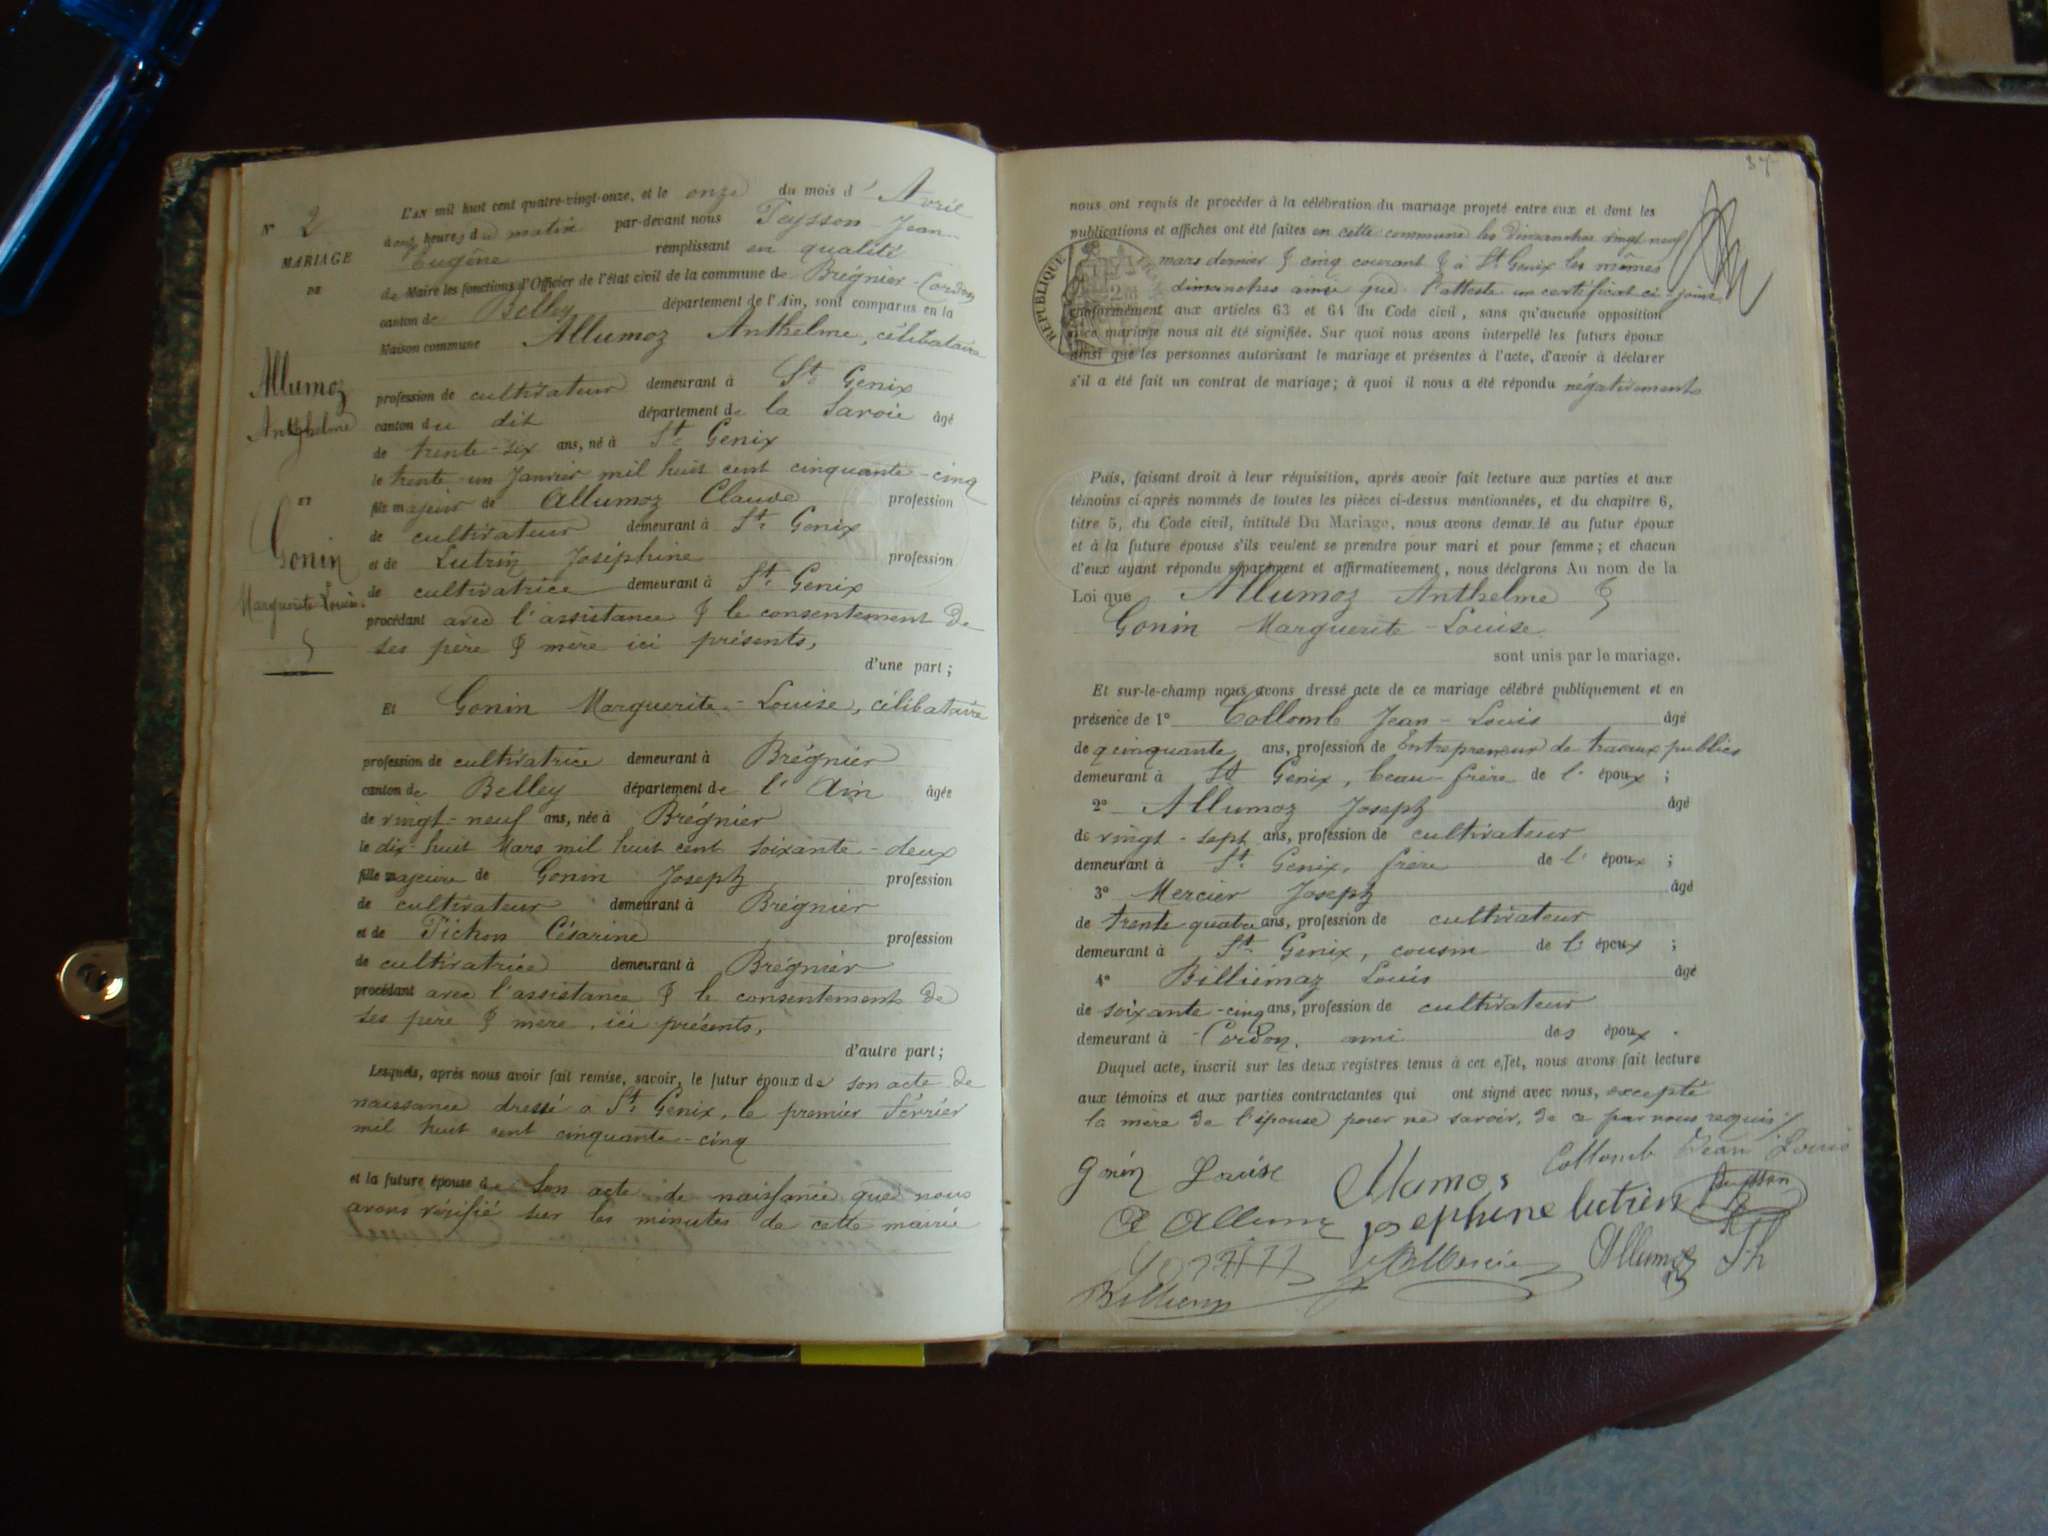 N° 2
MARIAGE
DE
Allumoz
Anthelme
ET
Gonin
Marguerite Louise
L'AN mil huit cent quatre-vingt-onze, et le onze du mois d' Avril
à onze heures du matin par-devant nous Teysson Jean-
Eugène remplissant en qualité
de Maire les fonctions d'Officier de l'état civil de la commune de Brégnier-Cordon
canton de Belley département de l'Ain, sont comparus en la
Maison commune Allumoz Anthelme, célibataire
profession de cultivateur demeurant à St Genix
canton du dit département de la Savoie âgé
de trente-six ans, né à St Genix
le trente un Janvier mil huit cent cinquante-cinq
fils majeur de Allumoz Claude profession
de cultivateur demeurant à St Genix
et de Lutrin Joséphine profession
de cultivatrice demeurant à St Genix
procédant avec l'assistance & le consentement de
ses père & mère ici présents,
d'une part ;
Et Gonin Marguerite-Louise, célibataire
profession de cultivatrice demeurant à Brégnier
canton de Belley département de l'Ain âgée
de vingt-neuf ans, née à Brégnier
le dix-huit Mars mil huit cent soixante-deux
fille majeure de Gonin Joseph profession
de cultivateur demeurant à Brégnier
et de Pichon Césarine profession
de cultivatrice demeurant à Brégnier
procédant avec l'assistance & le consentement de
ses père & mère, ici présents,
d'autre part ;
Lesquels, après nous avoir fait remise, savoir, le futur époux de son acte de
naissance dressé à St Genix, le premier février
mil huit cent cinquante-cinq
et la future épouse de Son acte de naissance que nous
avons vérifié sur les minutes de cette mairie
37
nous ont requis de procéder à la célébration du mariage projeté entre eux et dont les
publications et affiches ont été faites en cette commune les dimanches vingt neuf
mars dernier & cinq courant & à St Genix les mêmes
dimanches ainsi que l'atteste un certificat ci-joint
RÉPUBLIQUE
conformément aux articles 63 et 64 du Code civil, sans qu'aucune opposition
à ce mariage nous ait été signifiée. Sur quoi nous avons interpellé les futurs époux
ainsi que les personnes autorisant le mariage et présentes à l'acte, d'avoir à déclarer
s'il a été fait un contrat de mariage ; à quoi il nous a été répondu négativement
Puis, faisant droit à leur réquisition, après avoir fait lecture aux parties et aux
témoins ci-après nommés de toutes les pièces ci-dessus mentionnées, et du chapitre 6,
titre 5, du Code civil, intitulé Du Mariage, nous avons demandé au futur époux
et à la future épouse s'ils veulent se prendre pour mari et pour femme ; et chacun
d'eux ayant répondu séparément et affirmativement, nous déclarons Au nom de la
Loi que Allumoz Anthelme &
Gonin Marguerite-Louise
sont unis par le mariage.
Et sur-le-champ nous avons dressé acte de ce mariage célébré publiquement et en
présence de 1° Collomb Jean-Louis âgé
de cinquante ans, profession de Entrepreneur de travaux publics
demeurant à St Genix, beau-frère de l'époux ;
2° Allumoz Joseph âgé
de vingt-sept ans, profession de cultivateur
demeurant à St Genix, frère de l'époux ;
3° Mercier Joseph âgé
de trente quatre ans, profession de cultivateur
demeurant à St Genix, cousin de l'époux ;
4° Billiémaz Louis âgé
de soixante-cinq ans, profession de cultivateur
demeurant à Cordon, ami des époux.
Duquel acte, inscrit sur les deux registres tenus à cet effet, nous avons fait lecture
aux témoins et aux parties contractantes qui ont signé avec nous, excepté
la mère de l'épouse pour ne savoir, de ce par nous requis
Gonin Louise Collomb Jean Louis
josephine lutrin
Allumoz